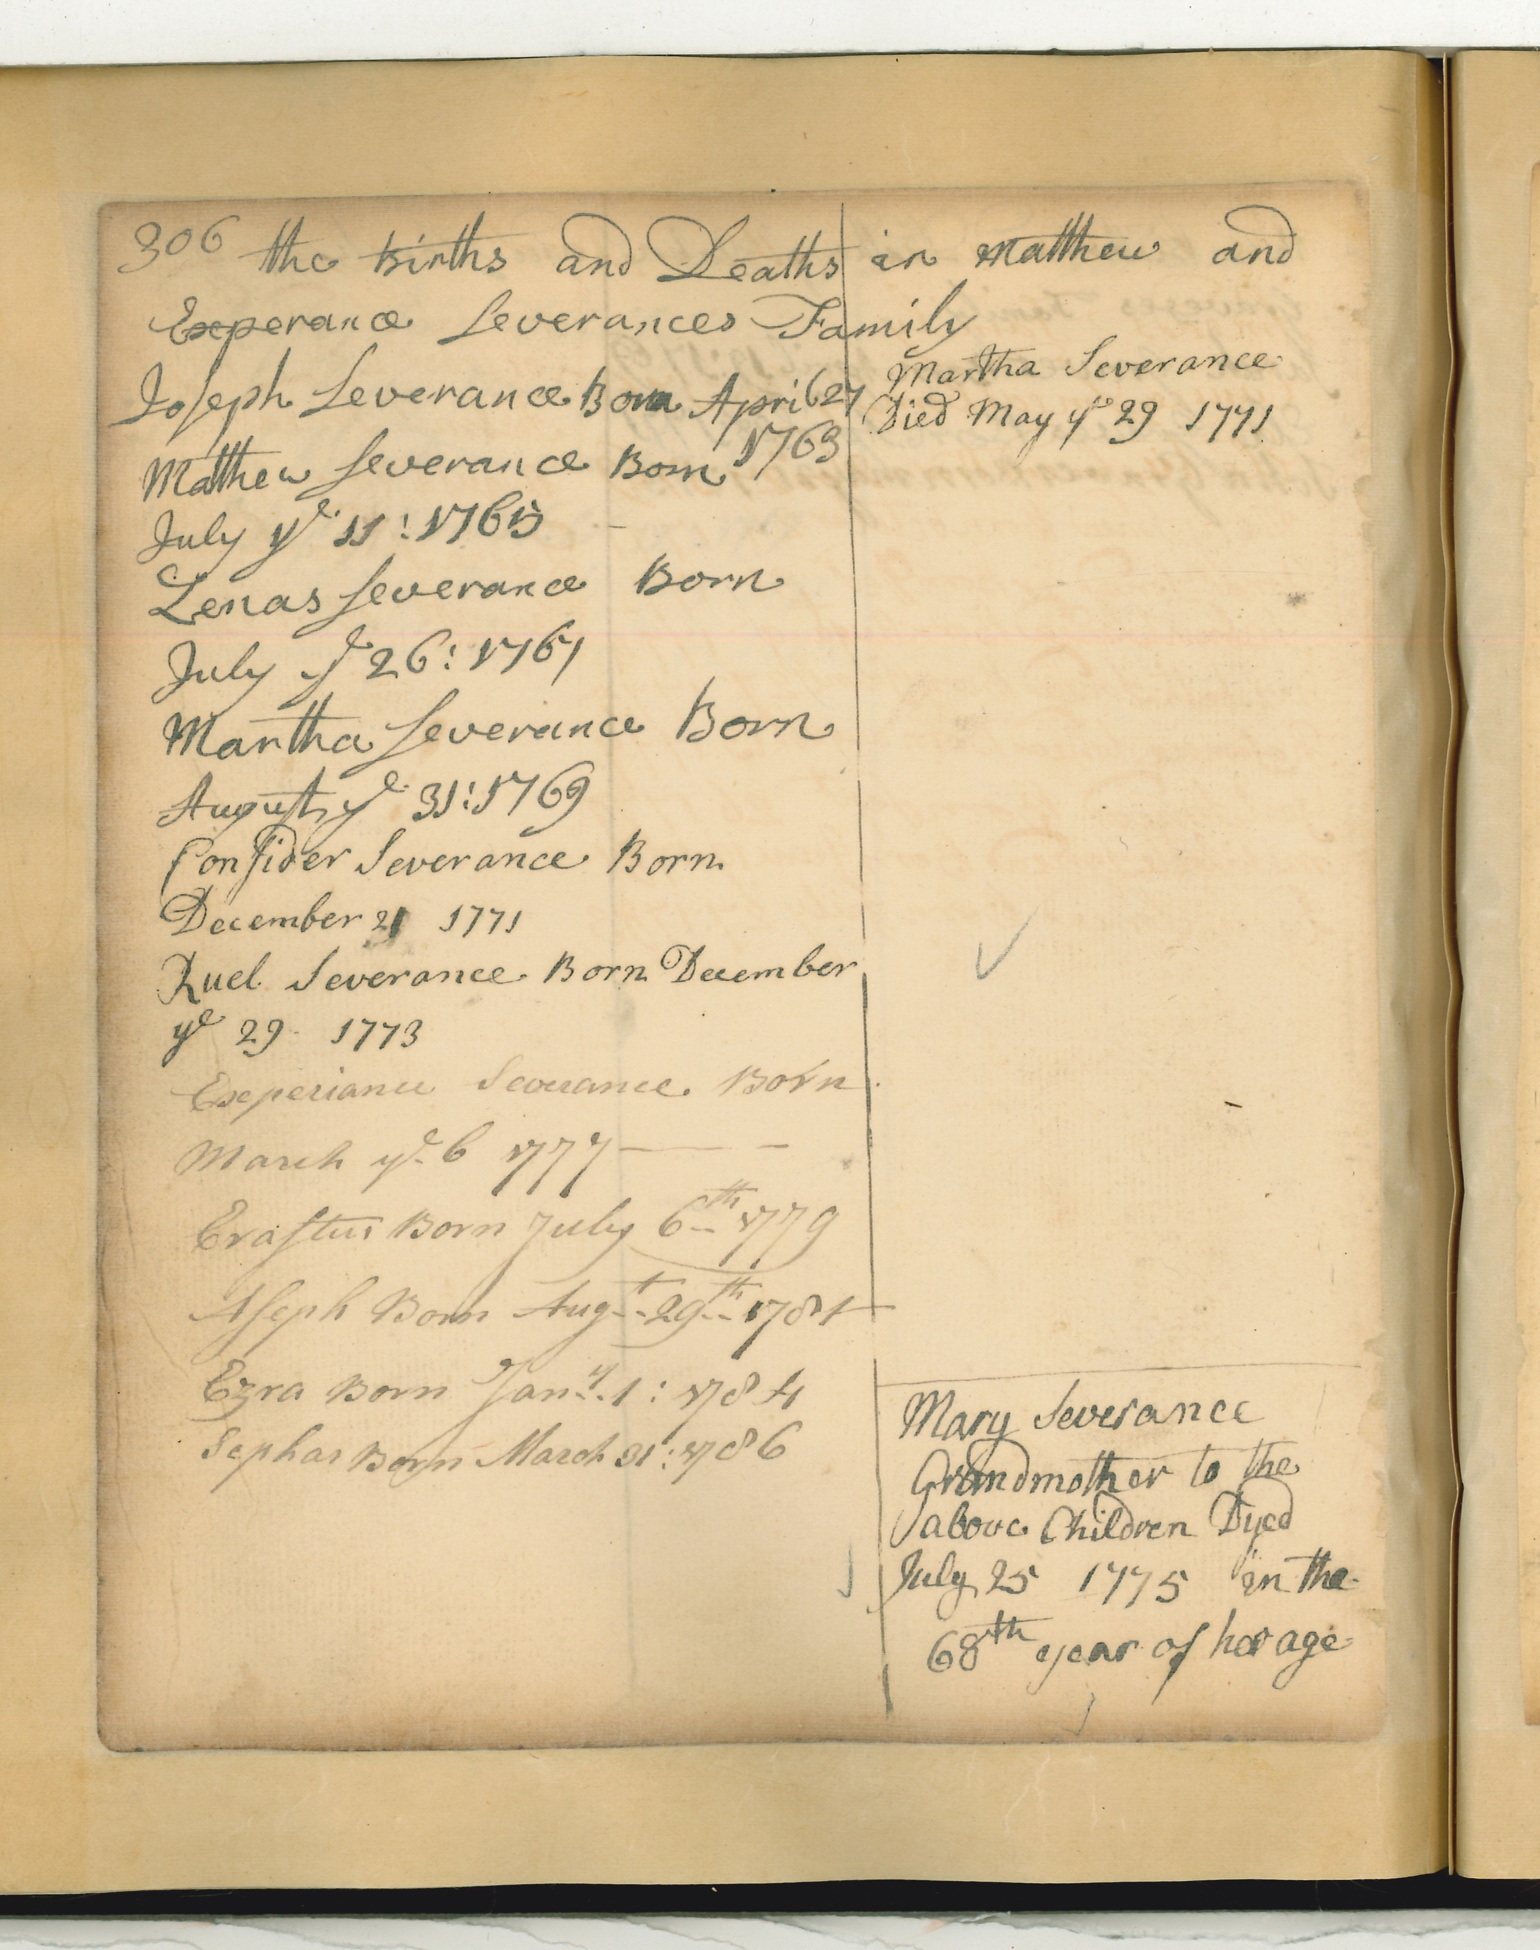 306 the Births and Deaths in Matthew and
Experance Severances Family
Joseph Severance Born April 27
1763
Matthew Severance Born
July ye 11: 1765
Zenas Severance Born
July ye 26: 1767
Martha Severance Born
August ye 31: 1769
Consider Severance Born
December 21 1771
Ruel Severance Born December
ye 29 1773
Experiance Severance Born
March ye 6 1777
Erastus Born July 6th 1779
Born Augt 29th 1781
Ezra Born Jany 1: 1784
Sephas Born March 31: 1786
Martha Severance
Died May ye 29 1771
Mary Severance
Grandmother to the
above Children Dyed
July 25 1775 in the
68th year of her age